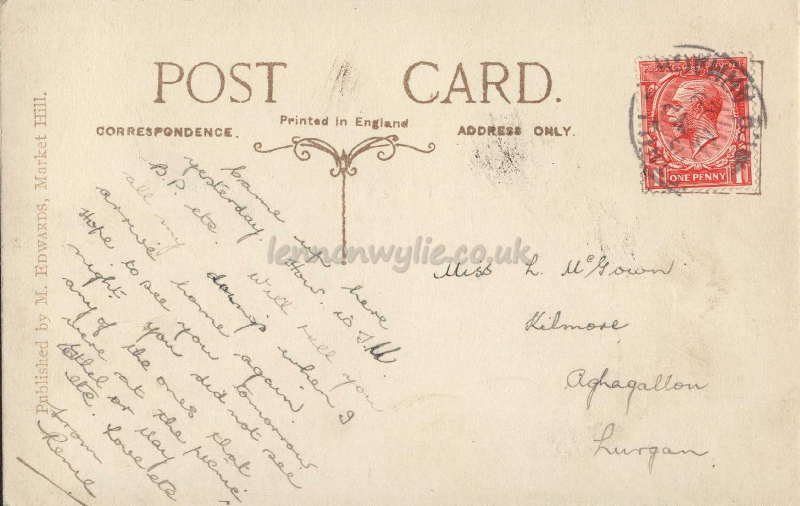 POST CARD.
Printed in England
CORRESPONDENCE.
ADDRESS ONLY.
Published by M. EDWARDS, Market Hill.
ONE PENNY
Came up here
yesterday. How is J.M
B.P. etc. Will tell you
all my doings when I
arrive home tomorrow
night. Hope to see you again.
You did not see
any of the ones that
were at the picnic,
Ethel or May
etc. Love etc
from
Renie
Miss L. McGown
Kilmore
Aghagallon
Lurgan.
lennonwylie.co.uk